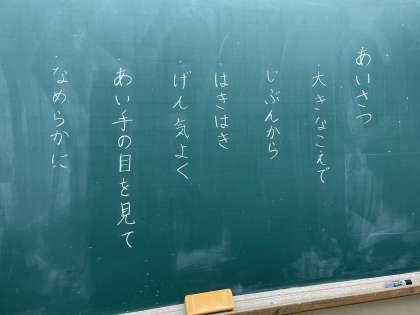 あいさつ
・大きなこえで
・じぶんから
・はきはき
・げん気よく
・あい手の目を見て
・なめらかに